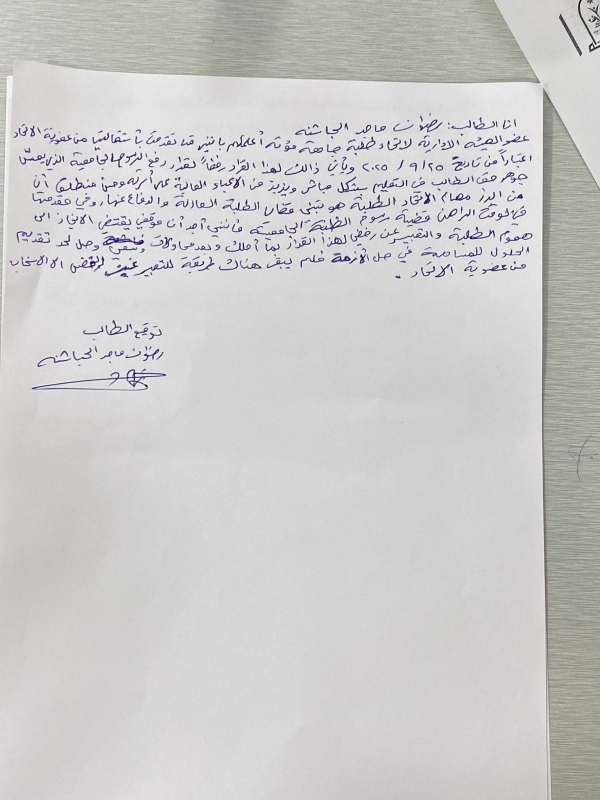 انا الطالب: رضوان ماجد الحباشنه
عضو الهيئة الادارية لاتحاد طلبة جامعة مؤته أعلمكم بانني قد تقدمت باستقالتي من عضوية الاتحاد
اعتباراً من تاريخ ٢٥ / ٩ / ٢٠٢٥ ويأتي ذالك لهذا القرار رفضاً لقرار رفع الرسوم الجامعية الذي يمس
جوهر حق الطالب في التعليم بشكل مباش ويزيد من الاعباء المالية على أسرته ومن منطلق أن
من ابرز مهام الاتحاد الطلبة هو تبني قضايا الطلبة العادلة والدفاع عنها وفي مقدمتها
في الوقت الراهن قضية رسوم الطلبة الجامعية فانني أجد أن موقفي يقتضي الانحياز الى
هموم الطلبة والتعبير عن رفضي لهذا القرار بما أملك وبعد محاولات وصل لحد تقديم
الحلول للمساهمة في حل الأزمة فلم يبقى هناك طريقة للتعبير عن الرفض الا الانسحاب
من عضوية الاتحاد .
توقيع الطالب
رضوان ماجد الحباشنه